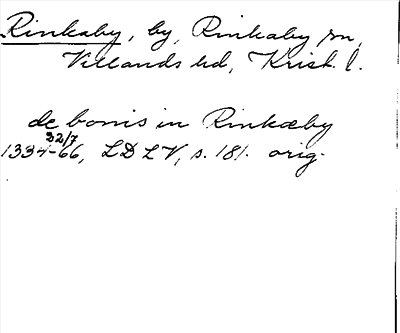 Rinkaby, by, Rinkaby sn,
Villands hd, Krist. l.
de bonis in Rinkæby
32/7
1334-66, LDLV, s. 181. orig.